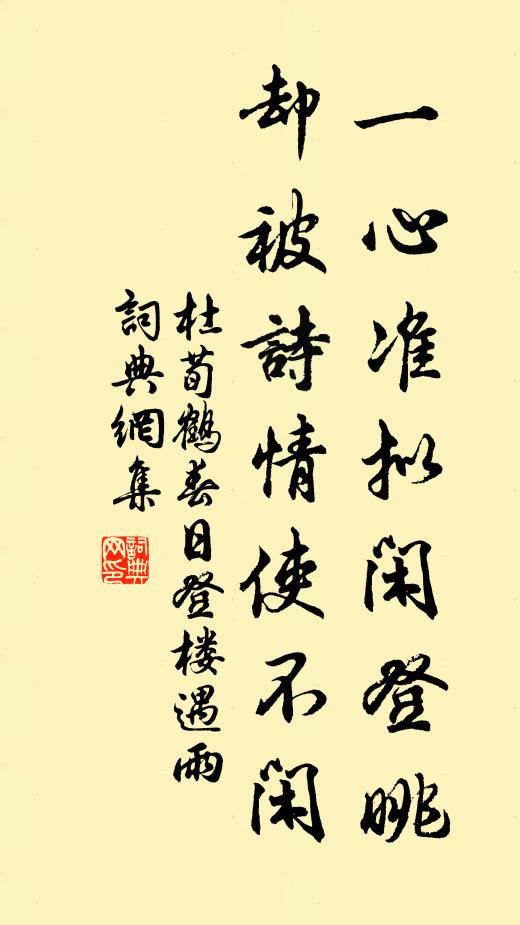 一心准拟闲登眺
却被詩情使不闲
杜荀鶴春日登楼遇雨
詞典網集
詞典
网印